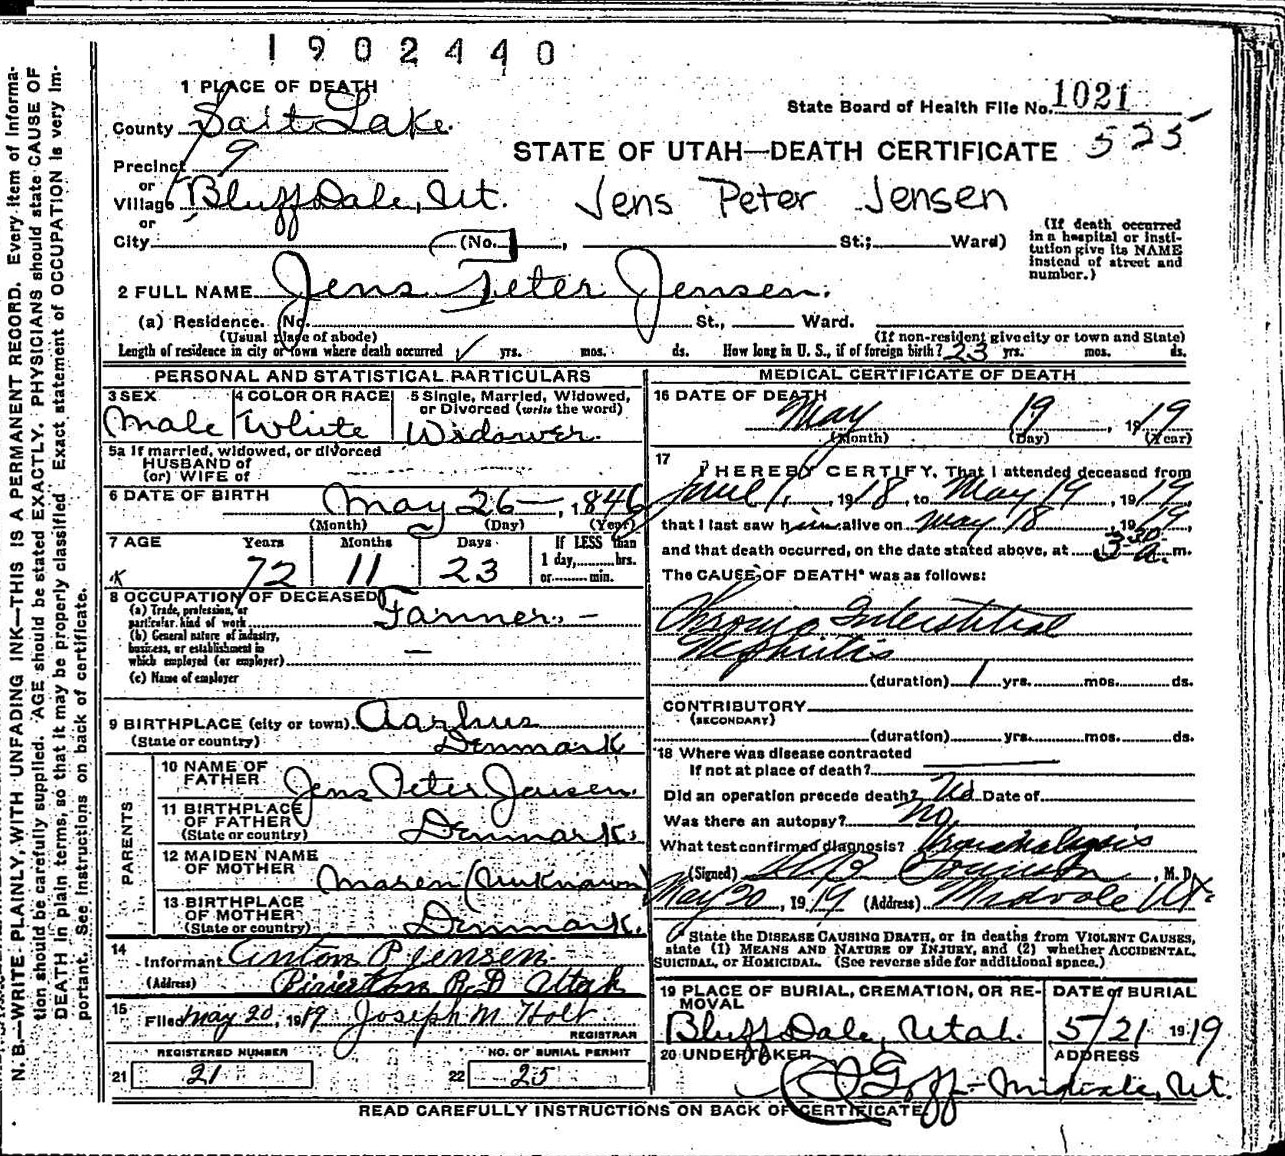 1902440
1 PLACE OF DEATH
State Board of Health File No. 1021
County Salt Lake.
525
Precinct 9
STATE OF UTAH—DEATH CERTIFICATE
or
Village BluffDale, Ut. Jens Peter Jensen
or
City (No. , St.; Ward)
(If death occurred in a hospital or institution give its NAME instead of street and number.)
2 FULL NAME Jens Peter Jensen.
(a) Residence. No. St., Ward.
(Usual place of abode) (If non-resident give city or town and State)
Length of residence in city or town where death occurred yrs. mos. ds. How long in U. S., if of foreign birth? 23 yrs. mos. ds.
PERSONAL AND STATISTICAL PARTICULARS
3 SEX 4 COLOR OR RACE 5 Single, Married, Widowed, or Divorced (write the word)
Male White Widower.
5a If married, widowed, or divorced
HUSBAND of
(or) WIFE of
6 DATE OF BIRTH May 26—, 1846
(Month) (Day) (Year)
7 AGE Years Months Days If LESS than
1 day, hrs.
72 11 23 or min.
8 OCCUPATION OF DECEASED
(a) Trade, profession, or
particular kind of work Farmer. —
(b) General nature of industry,
business, or establishment in
which employed (or employer) —
(c) Name of employer
9 BIRTHPLACE (city or town) Aarhus
(State or country) Denmark
PARENTS
10 NAME OF
FATHER Jens Peter Jensen.
11 BIRTHPLACE
OF FATHER
(State or country) Denmark.
12 MAIDEN NAME
OF MOTHER Maren (Unknown)
13 BIRTHPLACE
OF MOTHER
(State or country) Denmark.
14
Informant Anton P Jensen
(Address) Riverton R.D Utah
15
Filed May 20, 1919 Joseph M Holt
REGISTRAR
REGISTERED NUMBER NO. OF BURIAL PERMIT
21 21 22 25
MEDICAL CERTIFICATE OF DEATH
16 DATE OF DEATH
May 19, 1919
(Month) (Day) (Year)
17
I HEREBY CERTIFY, That I attended deceased from
June 1, 1918, to May 19, 1919,
that I last saw him alive on May 18, 1919,
and that death occurred, on the date stated above, at 3:30 a. m.
The CAUSE OF DEATH* was as follows:
Chronic Interstitial
Nephritis
(duration) 1 yrs. mos. ds.
CONTRIBUTORY
(SECONDARY)
(duration) yrs. mos. ds.
18 Where was disease contracted
If not at place of death?
Did an operation precede death? No Date of
Was there an autopsy? No
What test confirmed diagnosis? Urinalysis
(Signed) , M. D.
May 20, 1919 (Address) Midvale Ut.
State the DISEASE CAUSING DEATH, or in deaths from VIOLENT CAUSES,
state (1) MEANS AND NATURE OF INJURY, and (2) whether ACCIDENTAL,
SUICIDAL, or HOMICIDAL. (See reverse side for additional space.)
19 PLACE OF BURIAL, CREMATION, OR RE-
MOVAL
DATE of BURIAL
BluffDale, Utah. 5/21 1919
20 UNDERTAKER ADDRESS
Goff — Midvale, Ut.
READ CAREFULLY INSTRUCTIONS ON BACK OF CERTIFICATE
N. B.—WRITE PLAINLY, WITH UNFADING INK—THIS IS A PERMANENT RECORD. Every item of Informa-
tion should be carefully supplied. AGE should be stated EXACTLY. PHYSICIANS should state CAUSE OF
DEATH in plain terms, so that it may be properly classified. Exact statement of OCCUPATION is very im-
portant. See instructions on back of certificate.